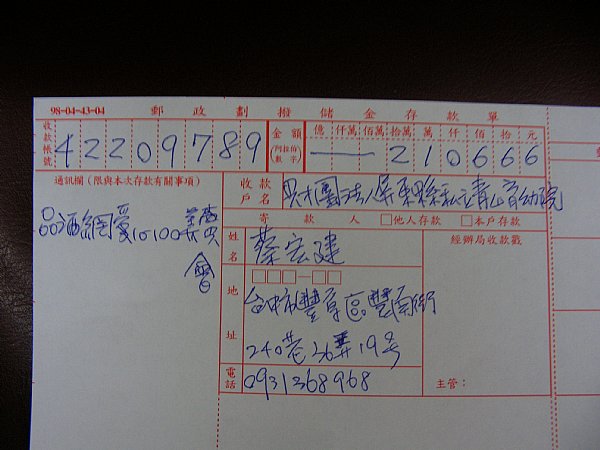 98-04-43-04 郵政劃撥儲金存款單
收款帳號 42209789 金額(阿拉伯數字) 億 仟萬 佰萬 拾萬 萬 仟 佰 拾 元
210666
通訊欄(限與本次存款有關事項)
收款戶名 財團法人屏東縣私立青山育幼院
寄款人 □他人存款 □本戶存款
品酒網愛心100義賣
會
姓名 蔡宏建
經辦局收款戳
地址 □□□-□□
台中市豐原區豐南街
240巷36弄19号
電話 0931368968
主管: